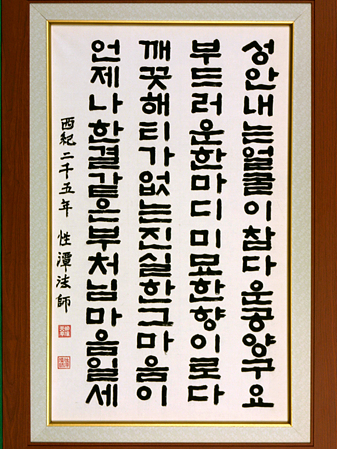 성안내는얼굴이참다운공양구요
부드러운한마디미묘한향이로다
깨끗해티가없는진실한그마음이
언제나한결같은부처님마음일세
西紀二千五年 性潭法師